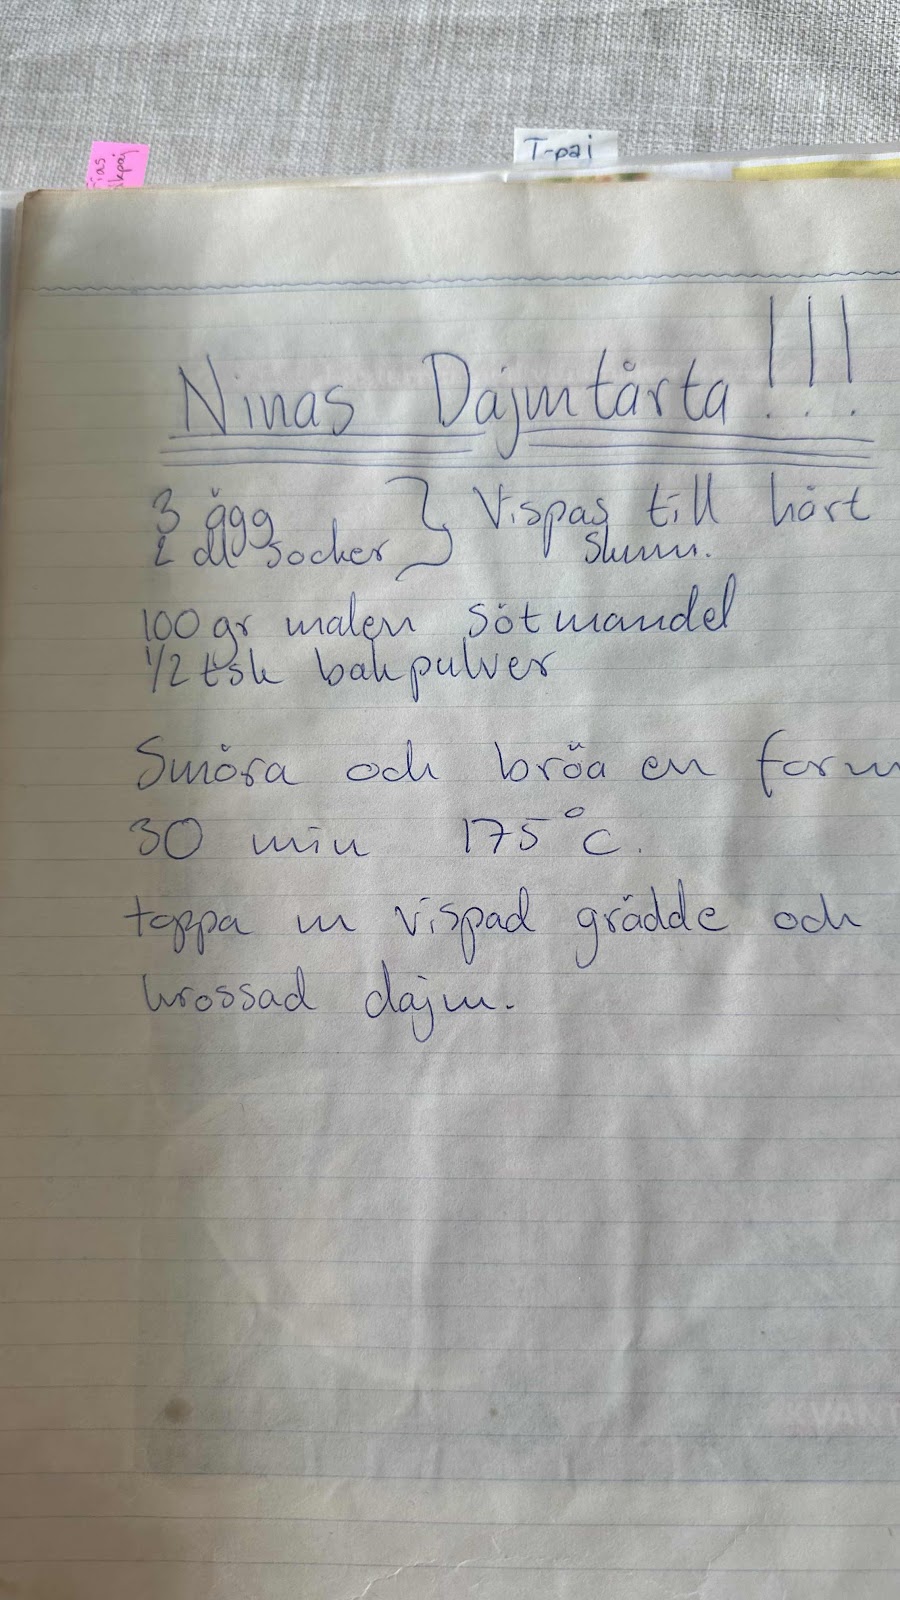 T-pai
Ninas Dajmtårta!!!
3 ägg } Vispas till hårt
2 dl socker skum.
100 gr malen sötmandel
1/2 tsk bakpulver
Smöra och bröa en form
30 min 175°C.
toppa m vispad grädde och
krossad dajm.
KVANT